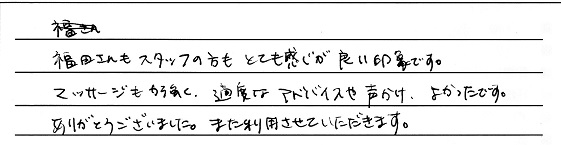 福田さんもスタッフの方も とても感じが 良い印象です。
マッサージも力強く、適度な アドバイスや 声かけ、よかったです。
ありがとうございました。また利用させていただきます。